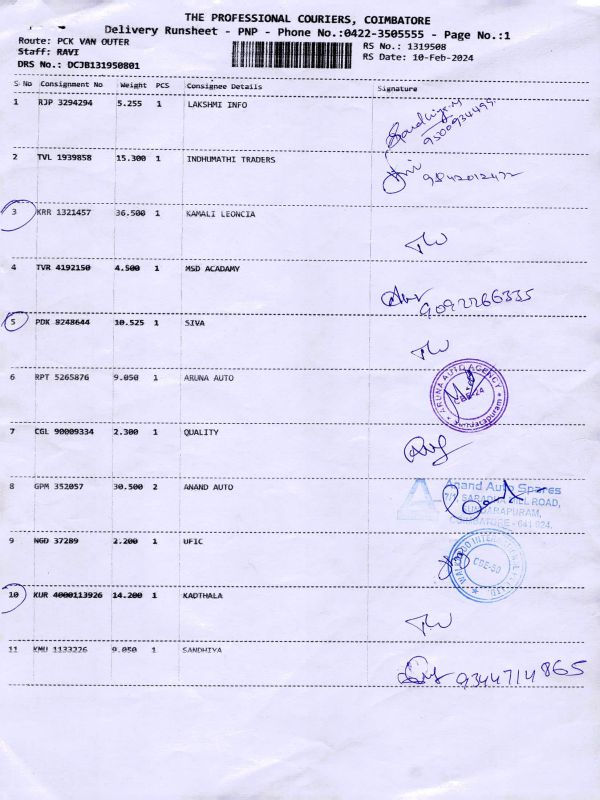 THE PROFESSIONAL COURIERS, COIMBATORE
Delivery Runsheet - PNP - Phone No.:0422-3505555 - Page No.:1
Route: PCK VAN OUTER
Staff: RAVI
DRS No.: DCJB131950801
RS No.: 1319508
RS Date: 10-Feb-2024
S No Consignment No Weight PCS Consignee Details Signature
1 RJP 3294294 5.255 1 LAKSHMI INFO
9500934499
2 TVL 1939858 15.300 1 INDHUMATHI TRADERS
9842012472
3 KRR 1321457 36.500 1 KAMALI LEONCIA
4 TVR 4192150 4.500 1 MSD ACADAMY
9092266335
5 PDK 8248644 10.525 1 SIVA
6 RPT 5265876 9.050 1 ARUNA AUTO
ARUNA AUTO AGENCY
7 CGL 90009334 2.300 1 QUALITY
8 GPM 352057 30.500 2 ANAND AUTO
Anand Auto Spares
MILL ROAD,
COIMBATORE - 641 024.
9 NGD 37289 2.200 1 UFIC
10 KUR 4000113926 14.200 1 KADTHALA
11 KMU 1133226 9.050 1 SANDHIYA
9344714865